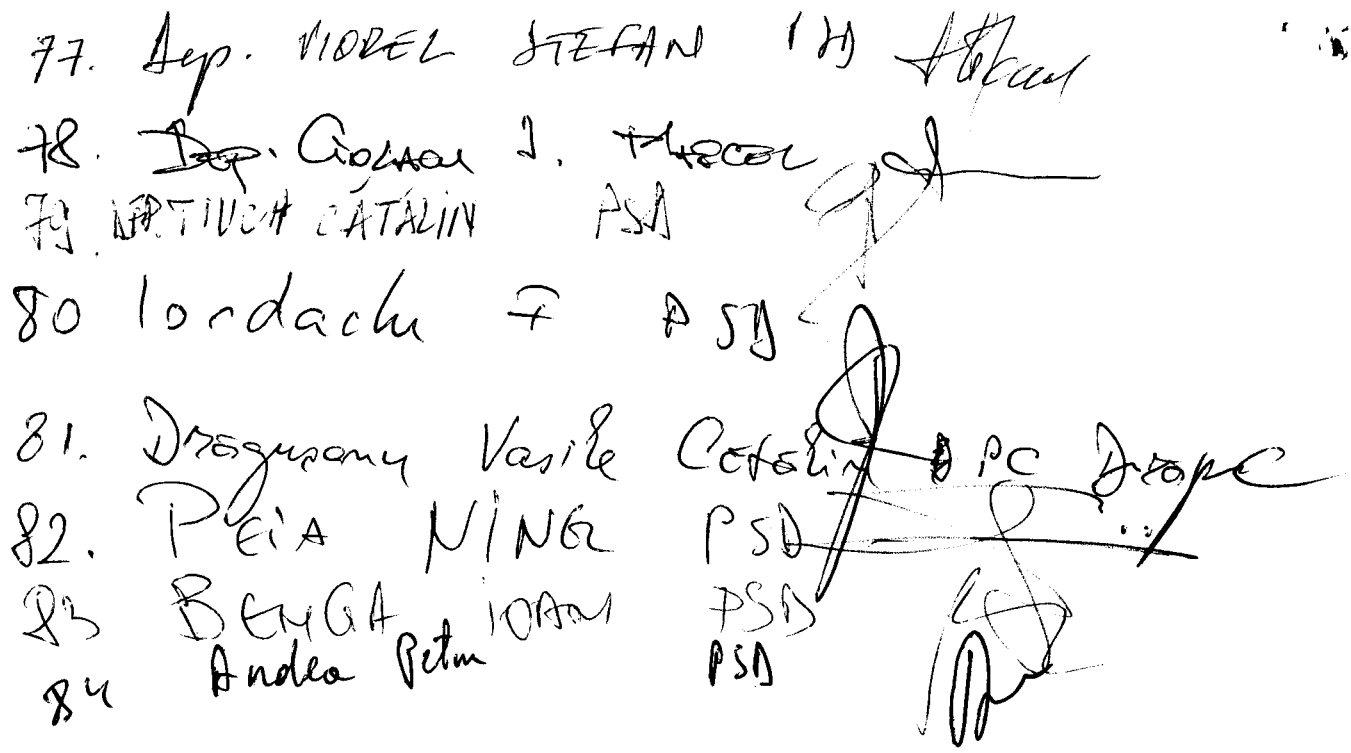 77. Dep. VIOREL ȘTEFAN PSD
78. Dep. Ciolacu I. Marcel
79. DEP. TIUCH CĂTĂLIN PSD
80 Iordache F PSD
81. Drăgușanu Vasile Cătălin PC
82. PEIA NINEL PSD
83 BENGA IOAN PSD
84 Andea Petru PSD